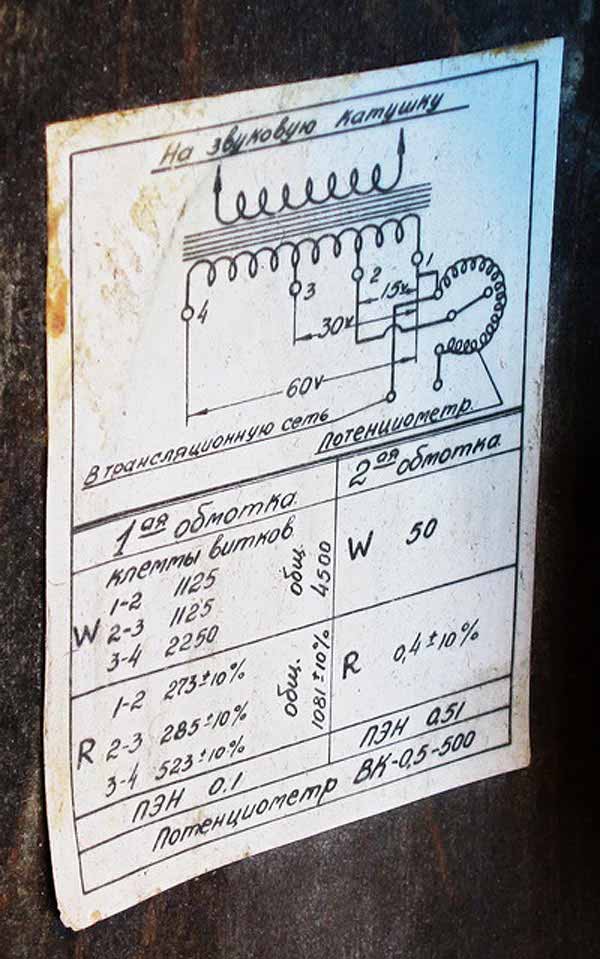 На звуковую катушку
4
3
2
1
15v
30v
60v
В трансляционную сеть
Потенциометр.
1ая обмотка.
2ая обмотка
клеммы витков.
W
1-2 1125
2-3 1125
3-4 2250
общ. 4500
W 50
R
1-2 273±10%
2-3 285±10%
3-4 523±10%
общ. 1081±10%
R 0,4±10%
ПЭН 0.1
ПЭН 0.51
Потенциометр ВК-0,5-500